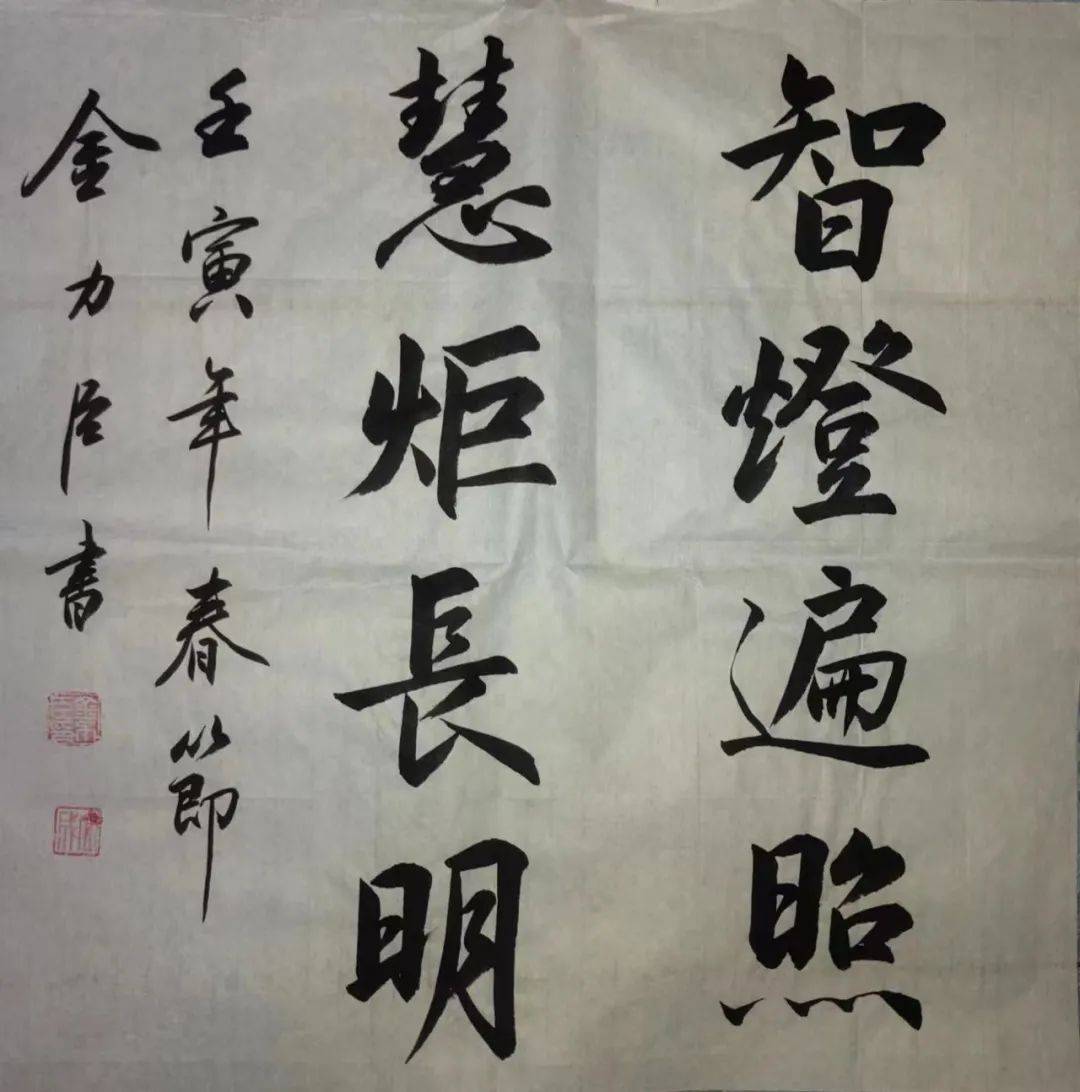 智燈遍照
慧炬長明
壬寅年春節
金力臣書